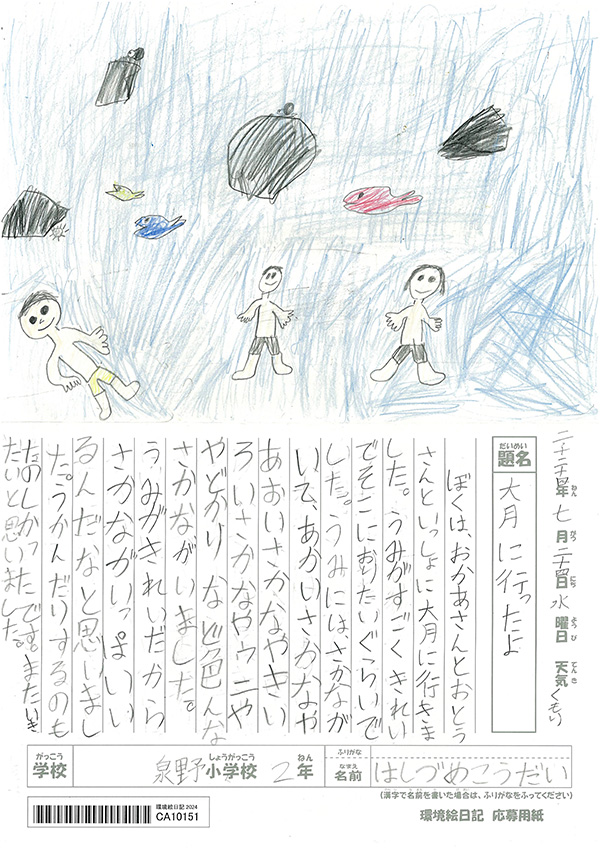 年 七月二十四日 水曜日 天気 くもり
だいめい
題名 大月に行ったよ
ぼくは、おかあさんとおとう
さんといっしょに大月に行きま
した。うみがすごくきれい
でそこにおりたいぐらいで
した。うみにはさかなが
いて、あかいさかなや
あおいさかなやきい
ろいさかなやウニや
やどかりなど色んな
さかながいました。
うみがきれいだから
さかながいっぱいい
るんだなと思いまし
た。うかんだりするのも
たのしかったです。またいき
たいと思いました。
がっこう しょうがっこう ねん ふりがな
学校 泉野小学校 2年 なまえ 名前 はしづめこうだい
(漢字で名前を書いた場合は、ふりがなをふってください)
環境絵日記2024
CA10151
環境絵日記 応募用紙